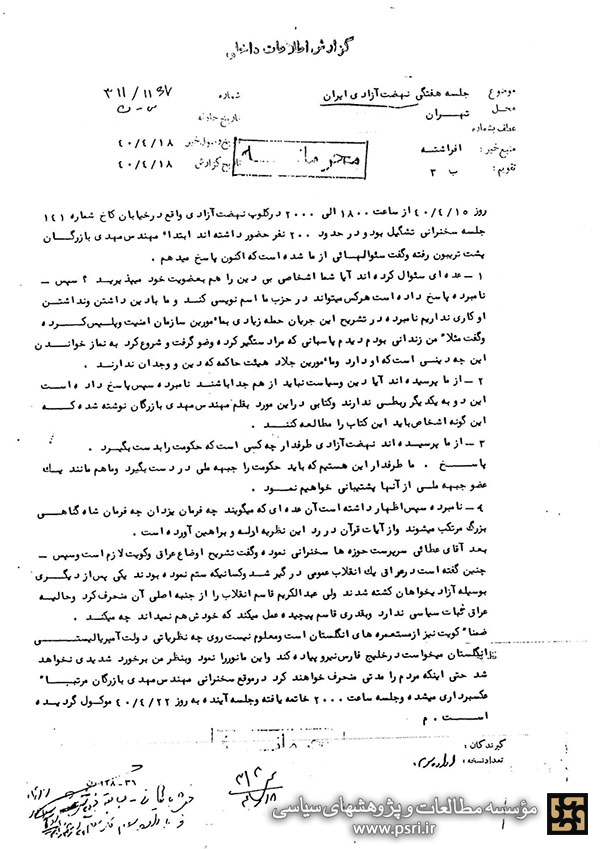 گزارش اطلاعات داخلی
موضوع جلسه هفتگی نهضت آزادی ایران
شماره ۳۱۱/
محل تهران
تاریخ حادثه
عطف بشماره
منبع خبر: افراشته
تاریخ وصول خبر ۴۰/۴/۱۸
تقویم: ب ۳
تاریخ گزارش ۴۰/۴/۱۸
محرمانه
روز ۴۰/۴/۱۵ از ساعت ۱۸۰۰ الی ۲۰۰۰ در کلوپ نهضت آزادی واقع در خیابان کاخ شماره ۱۴۱
جلسه سخنرانی تشکیل بود و در حدود ۲۰۰ نفر حضور داشته اند ابتداء مهندس مهدی بازرگان
پشت تریبون رفته و گفت سئوالهائی از ما شده است که اکنون پاسخ میدهم .
۱ – عده ای سئوال کرده اند آیا شما اشخاص بی دین را هم بعضویت خود میپذیرید ؟ سپس –
نامبرده پاسخ داده است هرکس میتواند در حزب ما اسم نویسی کند و ما با دین داشتن و نداشتن
او کاری نداریم نامبرده در تشریح این جریان حمله زیادی بمأمورین سازمان امنیت و پلیس کرده
و گفت مثلا" من زندانی بودم دیدم پاسبانی که مرا دستگیر کرده وضو گرفت و شروع کرد به نماز خواندن
این چه دینی است که او دارد و مأمورین جلاد هیئت حاکمه که دین و وجدان ندارند .
۲ – از ما پرسیده اند آیا دین و سیاست نباید از هم جدا باشند نامبرده سپس پاسخ داده است
این دو به یکدیگر ربطی ندارند و کتابی در این مورد بقلم مهندس مهدی بازرگان نوشته شده که
این گونه اشخاص باید این کتاب را مطالعه کنند .
۳ – از ما پرسیده اند نهضت آزادی طرفدار چه کسی است که حکومت را بدست بگیرد .
پاسخ . ما طرفدار این هستیم که باید حکومت را جبهه ملی در دست بگیرد و ما هم مانند یک
عضو جبهه ملی از آنها پشتیبانی خواهیم نمود .
۴ – نامبرده سپس اظهار داشته است آن عده ای که میگویند چه فرمان یزدان چه فرمان شاه گناهی
بزرگ مرتکب میشوند و از آیات قرآن در رد این نظریه ادله و براهین آورده است .
بعد آقای عطائی سرپرست حوزه ها سخنرانی نموده و گفت تشریح اوضاع عراق و کویت لازم است و سپس –
چنین گفته است در عراق یک انقلاب عمومی در گیر شد و کسانیکه ستم نموده بودند یکی پس از دیگری
بوسیله آزادیخواهان کشته شدند ولی عبدالکریم قاسم انقلاب را از جنبه اصلی آن منحرف کرد و حالیه
عراق ثبات سیاسی ندارد و بقدری قاسم پیچیده عمل میکند که خودش هم نمیداند چه میکند .
ضمنا" کویت نیز از مستعمره های انگلستان است و معلوم نیست روی چه نظریاتی دولت امپریالیستی
انگلستان میخواست در خلیج فارس نیرو پیاده کند و این مانور را نمود و بنظر من برخورد شدیدی نخواهد
شد حتی اینکه مردم را مدتی منحرف خواهند کرد در موقع سخنرانی مهندس مهدی بازرگان مرتبا"
عکسبرداری میشده و جلسه ساعت ۲۰۰۰ خاتمه یافته و جلسه آینده به روز ۴۰/۴/۲۲ موکول گردیده
است . م
گیرندگان:
تعداد نسخه:
۱
مؤسسه مطالعات و پژوهشهای سیاسی
www.psri.ir